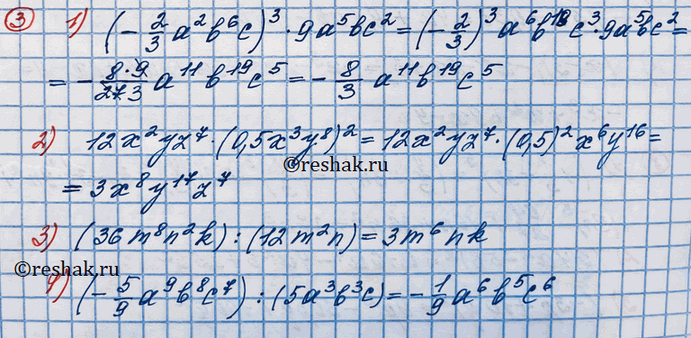 ③ 1) (-2/3 a²b⁶c)³ · 9a⁵bc² = (-2/3)³ a⁶b¹⁸c³ · 9a⁵bc² =
= - 8·9/27 3 a¹¹b¹⁹c⁵ = - 8/3 a¹¹b¹⁹c⁵
2) 12x²yz⁷ · (0,5x³y⁸)² = 12x²yz⁷ · (0,5)² x⁶y¹⁶ =
©reshak.ru
= 3x⁸y¹⁷z⁷
3) (36m⁸n²k) : (12m²n) = 3m⁶nk
©reshak.ru
4) (-5/9 a⁹b⁸c⁷) : (5a³b³c) = -1/9 a⁶b⁵c⁶